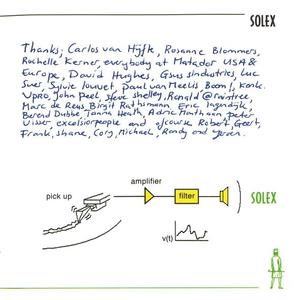 SOLEX
Thanks; Carlos van Hijfte, Rosanne Blommers,
Rochelle Kerner, everybody at Matador USA &
Europe, David Hughes, Gsus sindustries, Luc
Suer, Sylvie Louwet, paul van Meelis Boom!, konk.
Vpro, John Peel, steve shelley, Ronald @raintree
Marc de Reus, Birgit Rathsmann, Eric
Berend Dubbe, Tanna Heath, peter
Visser excelsiorpeople and ofcourse Robert, Geert,
Frank, shane, Cory, Michael, Randy and Jeroen.
amplifier
pick up
filter
SOLEX
v(t)